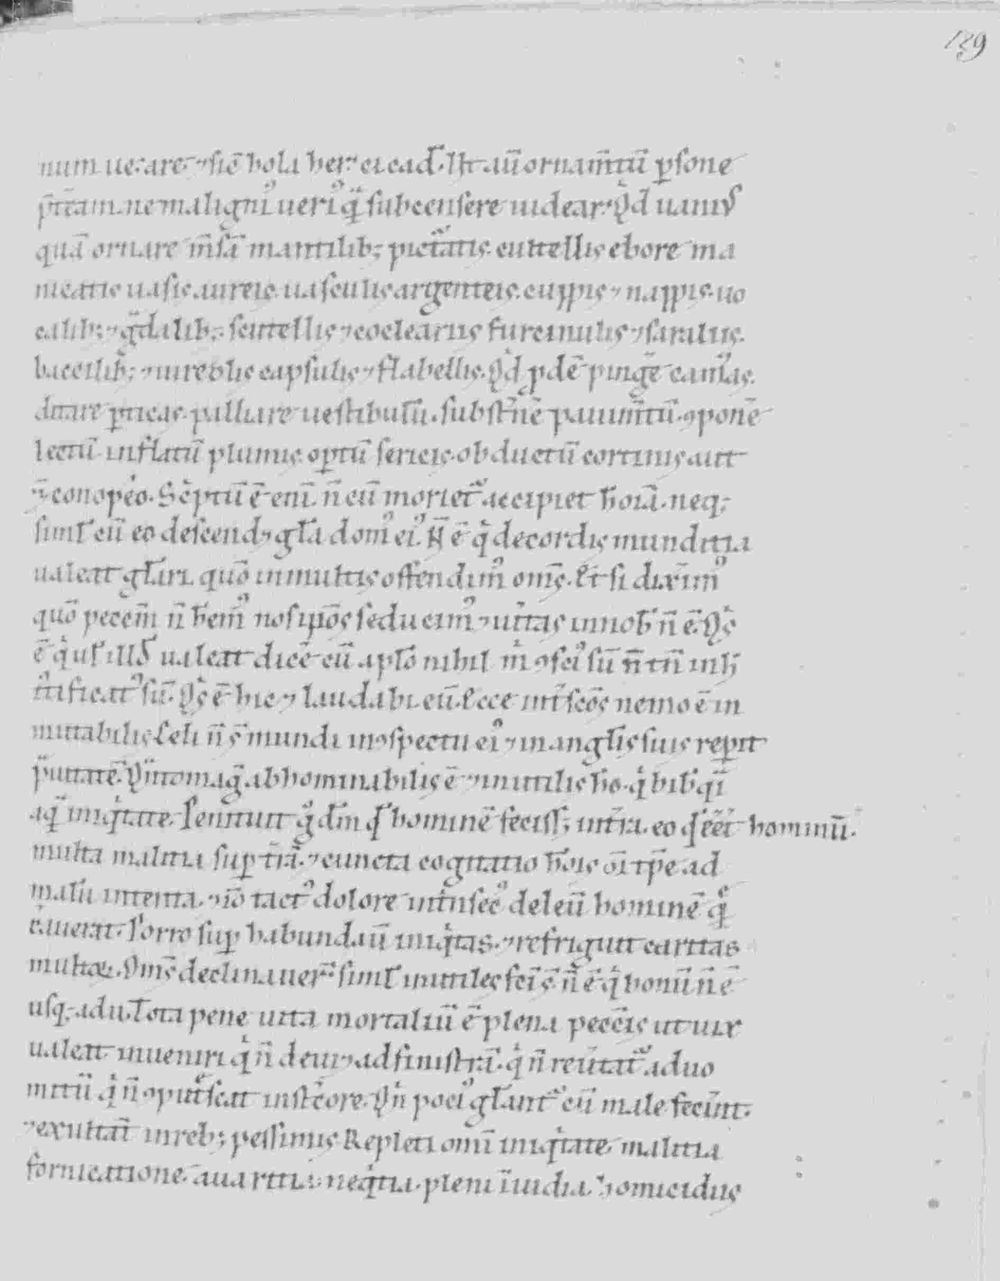 139
num uetare ⁊ sic̄ hola her ei cad̄. Ist aū ornam̄tū ꝑsone
p̄t̄eam. ne malignꝰ uerꝰ q̄ subcensere uidear. Qd̓ uaniꝰ
quā ornare m̄sā mantilibꝫ pict̓atis. cuttellis ebore ma
nicatis uasis aureis. uasculis argenteis. cuppis ⁊ nappis. uo
calibꝫ ⁊ g̓dalibꝫ. scutellis ⁊ coclearus furcinulis ⁊ saraliis.
bacilibꝫ ⁊ urceolis capsulis ⁊ flabellis. Qd̓ ꝓdē pinḡe cam̓as.
ditare ꝑticas. palliare uestibulū. subst̓nē pauim̄tū. ꝯponē
lectū inflatū plumis. opꝑtū sericis. obductū cortinis aut
conopeo. Sc̓ptū ē eni. n̄ cū moriet̓ accipiet h̄oīa. neqꝫ
simł cū eo descendꝫ gła domꝰ eiꝰ. N̄ ē q̓ de cordis munditia
ualeat głari. quō in multis offendimꝰ om̄s. Et si dixerimꝰ
quō peccm̄ n̄ hemꝰ nosip̄os seducimꝰ ⁊ uitas in nob̄ n̄ ē. Qs̓
ē q̓ uł illd̓ ualeat dicē cū apło nihil m̓ ꝯsciꝰ sū n̄ tn̄ in h̓
tificatꝰ sū. Qs̓ ē hic ⁊ laudabi. eū. Ecce int̓ sc̄os nemo ē in
mutabilis. Celi n̄ s̄ mundi in ꝯspectu eiꝰ ⁊ in angłis suis reperit
p̓uitatē. Q̄ntomaḡ abhominabilis ē ⁊ inutilis h̄o. q̓ bib̓ q̄i
aq̄ iniq̓tate. Penituit g̓ dm̄ qd̓ hominē fecissꝫ int̄ra. eo qd̓ eēt hominū.
multa malitia suꝑ t̄rā. ⁊ cuncta cogitatio h̄ois oī tp̄e ad
malū intenta. ⁊ iō tactꝰ dolore int̓nsecꝰ deleū hominē q̄
c̓auerat. Porro suꝑ habundaū iniq̓tas. ⁊ refriguit caritas
multoꝝ. Om̄s declinauer̄. simł inutiles fc̄i s̄ n̄ ē q̓ bonū n̄ ē
usqꝫ ad u. Tota pene uita mortaliū ē plena pecc̄is ut uix
ualeat inueniri q̓ n̄ deuiꝫ ad sinistrā. q̓ n̄ reu̓tat̓ ad uo
mitū q̓ n̄ ꝯput̓scat in st̓core. Qn̄ pociꝰ głant̓ cū male fecint.
⁊ exultāt in rebꝫ pessimis. Repleti omī iniq̓tate. malitia
fornicatione. auaritia. neq̓tia. pleni īuidia. homicidiis